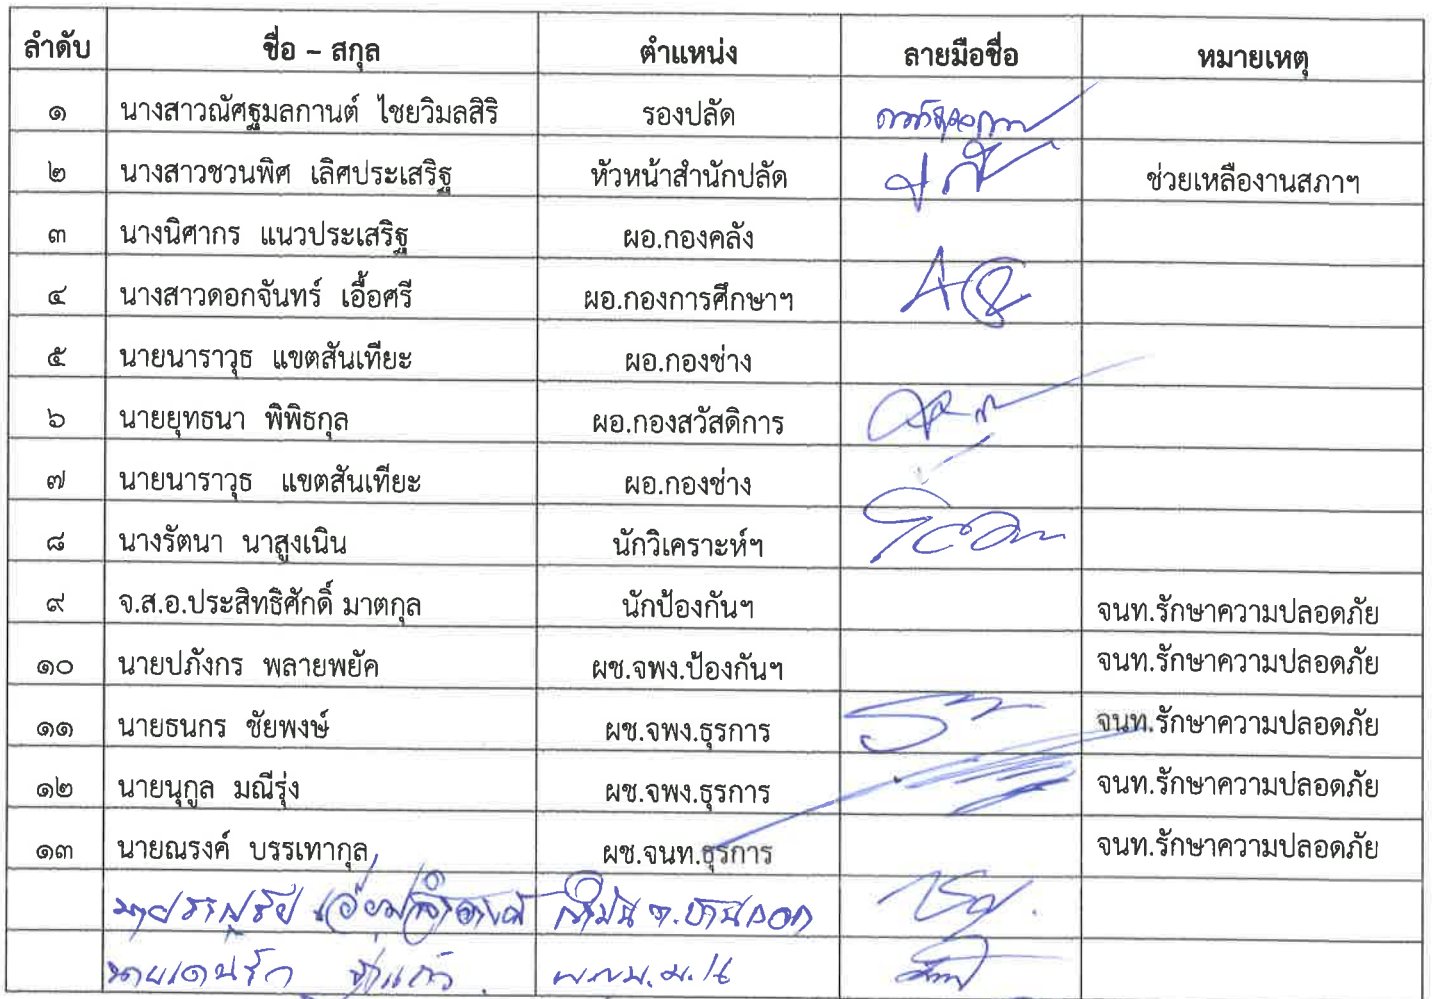 ลำดับ ชื่อ – สกุล ตำแหน่ง ลายมือชื่อ หมายเหตุ
๑ นางสาวณัศฐมลกานต์ ไชยวิมลสิริ รองปลัด
๒ นางสาวชวนพิศ เลิศประเสริฐ หัวหน้าสำนักปลัด ช่วยเหลืองานสภาฯ
๓ นางนิศากร แนวประเสริฐ ผอ.กองคลัง
๔ นางสาวดอกจันทร์ เอื้อศรี ผอ.กองการศึกษาฯ
๕ นายนาราวุธ แขตสันเทียะ ผอ.กองช่าง
๖ นายยุทธนา พิพิธกุล ผอ.กองสวัสดิการ
๗ นายนาราวุธ แขตสันเทียะ ผอ.กองช่าง
๘ นางรัตนา นาสูงเนิน นักวิเคราะห์ฯ
๙ จ.ส.อ.ประสิทธิศักดิ์ มาตกุล นักป้องกันฯ จนท.รักษาความปลอดภัย
๑๐ นายปภังกร พลายพยัค ผช.จพง.ป้องกันฯ จนท.รักษาความปลอดภัย
๑๑ นายธนกร ชัยพงษ์ ผช.จพง.ธุรการ จนท.รักษาความปลอดภัย
๑๒ นายนุกูล มณีรุ่ง ผช.จพง.ธุรการ จนท.รักษาความปลอดภัย
๑๓ นายณรงค์ บรรเทากุล ผช.จนท.ธุรการ จนท.รักษาความปลอดภัย